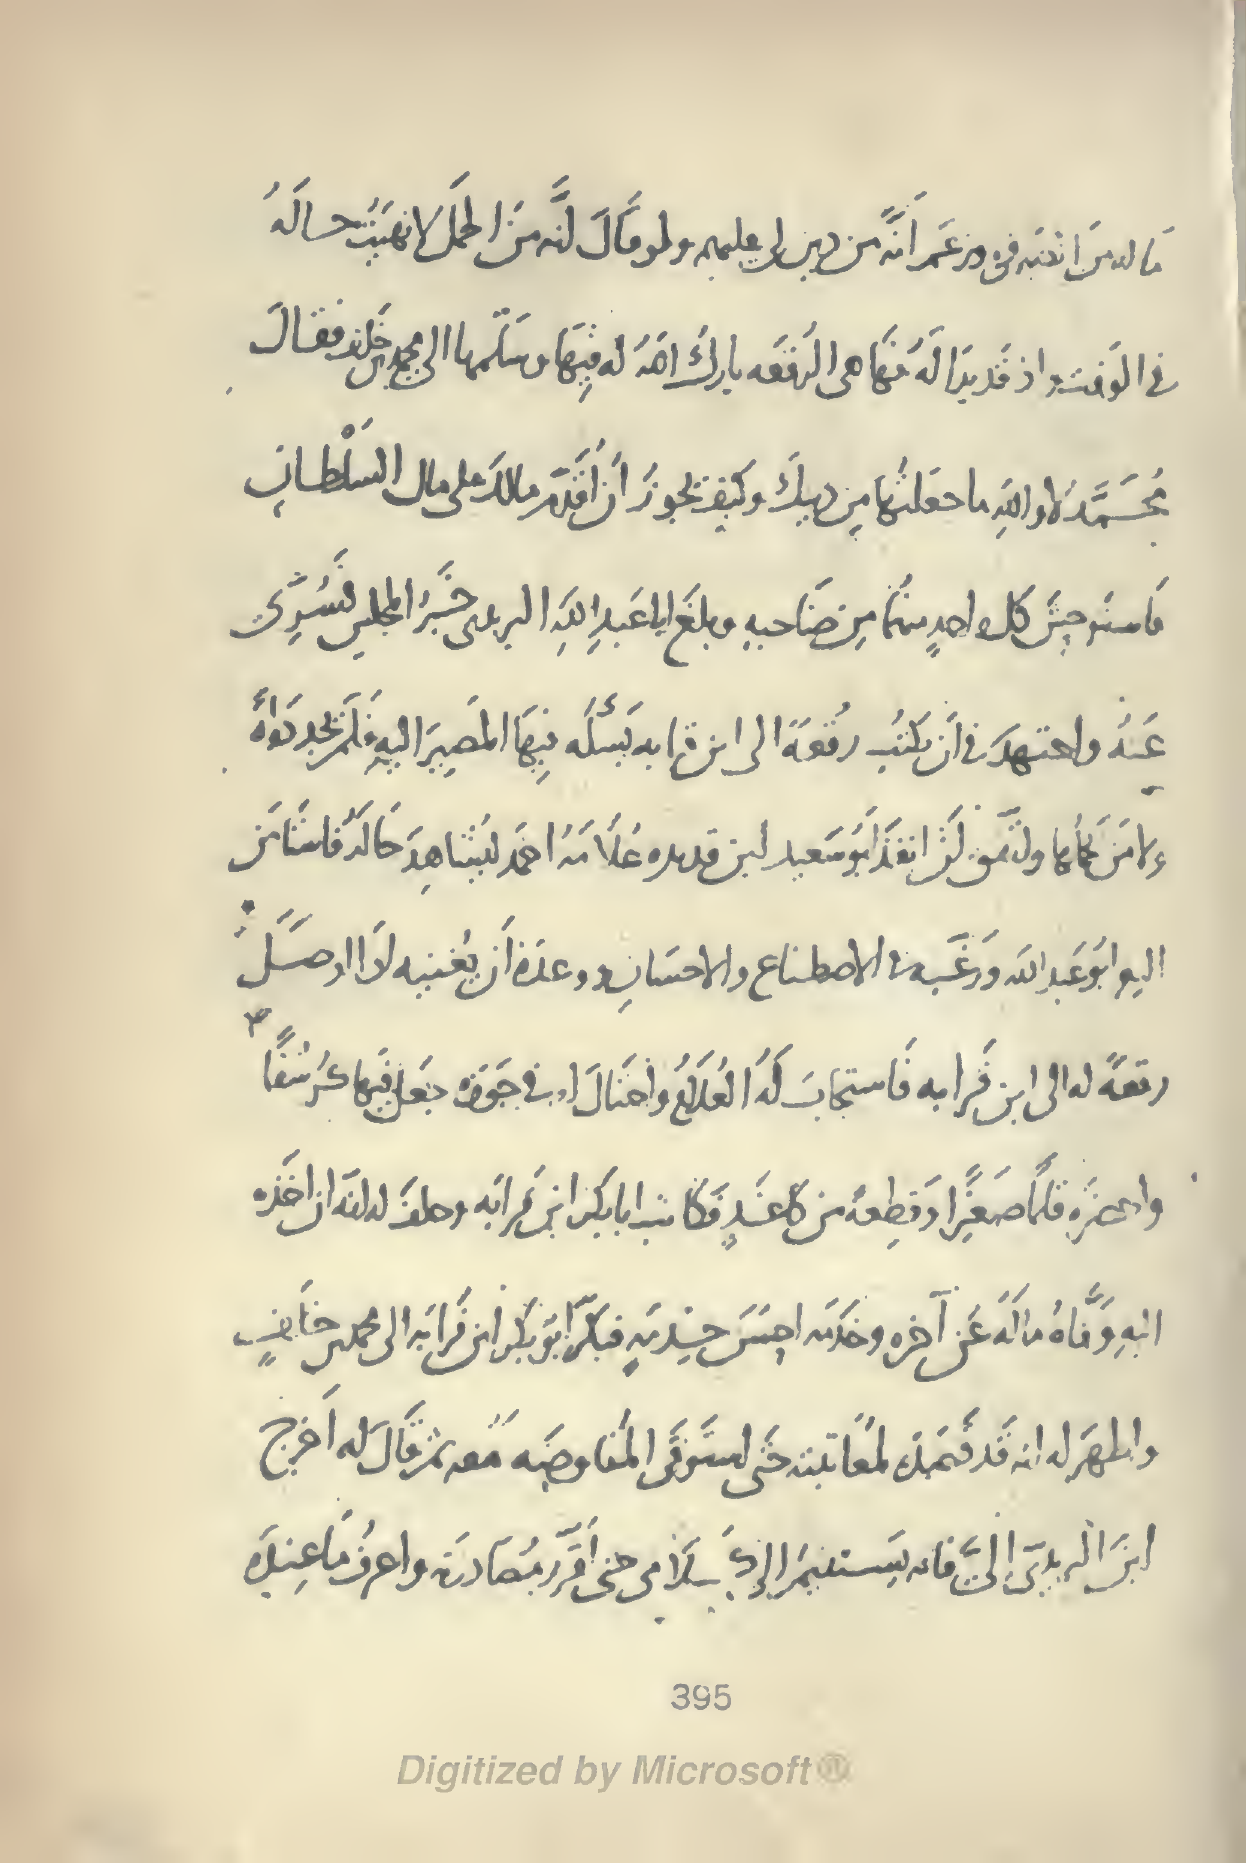 ما له من وزعم انه من دين لي عليهم ولو قال لنه من الحمل لانهيت حاله
في الوقت واذ قد بدا له منها هي الرقعه بارك الله له فيها وسلمها الى محمد بن خلف فقال
محمد لا والله ما جعلتها من دينك وكيف يجوز أن أقدم مالك على مال السلطان
فاستوحش كل واحد منهما من صاحبه وبلغ ابا عبد الله البريدى خبر المجلس فسرى
عنه واجتهد في أن يكتب رقعة الى ابن قرابه يسئله فيها المصير اليه فلم يجد دواة
ولا من يحملها واتفق لن انفذ أبو سعيد ابن قديده غلامه احمد ليشاهد حاله
اليه ابو عبد الله ورغبه في الاصطناع والاحسان ووعده أن يغنيه اذا اوصل
رقعة له الى ابن قرابه فاستجاب له الغلام واحتال في جوزه جعل فيها كرسفا
واحضره قلما صغيرا وقطعة من كاغد فكاتب ابا بكر ابن قرابه وحلف له انه ان اخذه
اليه وفاه ماله عن آخره وخدمه احسن خدمة فبكر ابو بكر ابن قرابه الى محمد بن خلف
واظهر له انه قد لمعاتبته حتى استوفى المفاوضه معه ثم قال له اخرج
ابن البريدى إلى فانه يستنيم إلى كلامى حتى أقرر مصادرته واعرف ما عنده
395
Digitized by Microsoft®